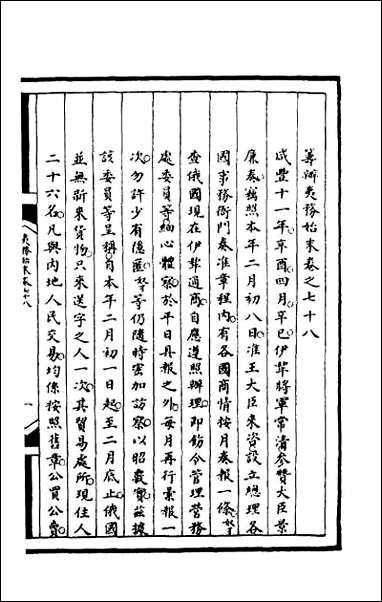 籌辦夷務始末卷之七十八
咸豐十一年辛酉四月辛巳伊犂將軍常清參贊大臣景
廉奏竊照本年二月初八日准王大臣來咨設立總理各
國事務衙門奏准章程內有各國商情按月奏報一條奴才等
查俄國現在伊犂通商自應遵照辦理即飭令管理營務
處委員等細心體察於平日具報之外每月再行彙報一
次勿許少有隱匿奴才等仍隨時密加訪察以昭嚴實茲據
該委員等呈稱自本年二月初一日起至二月底止俄國
並無新來貨物只來送字之人一次其貿易處所現住人
二十六名凡與內地人民交易均係按照舊章公買公賣
夷務始末卷七十八
一